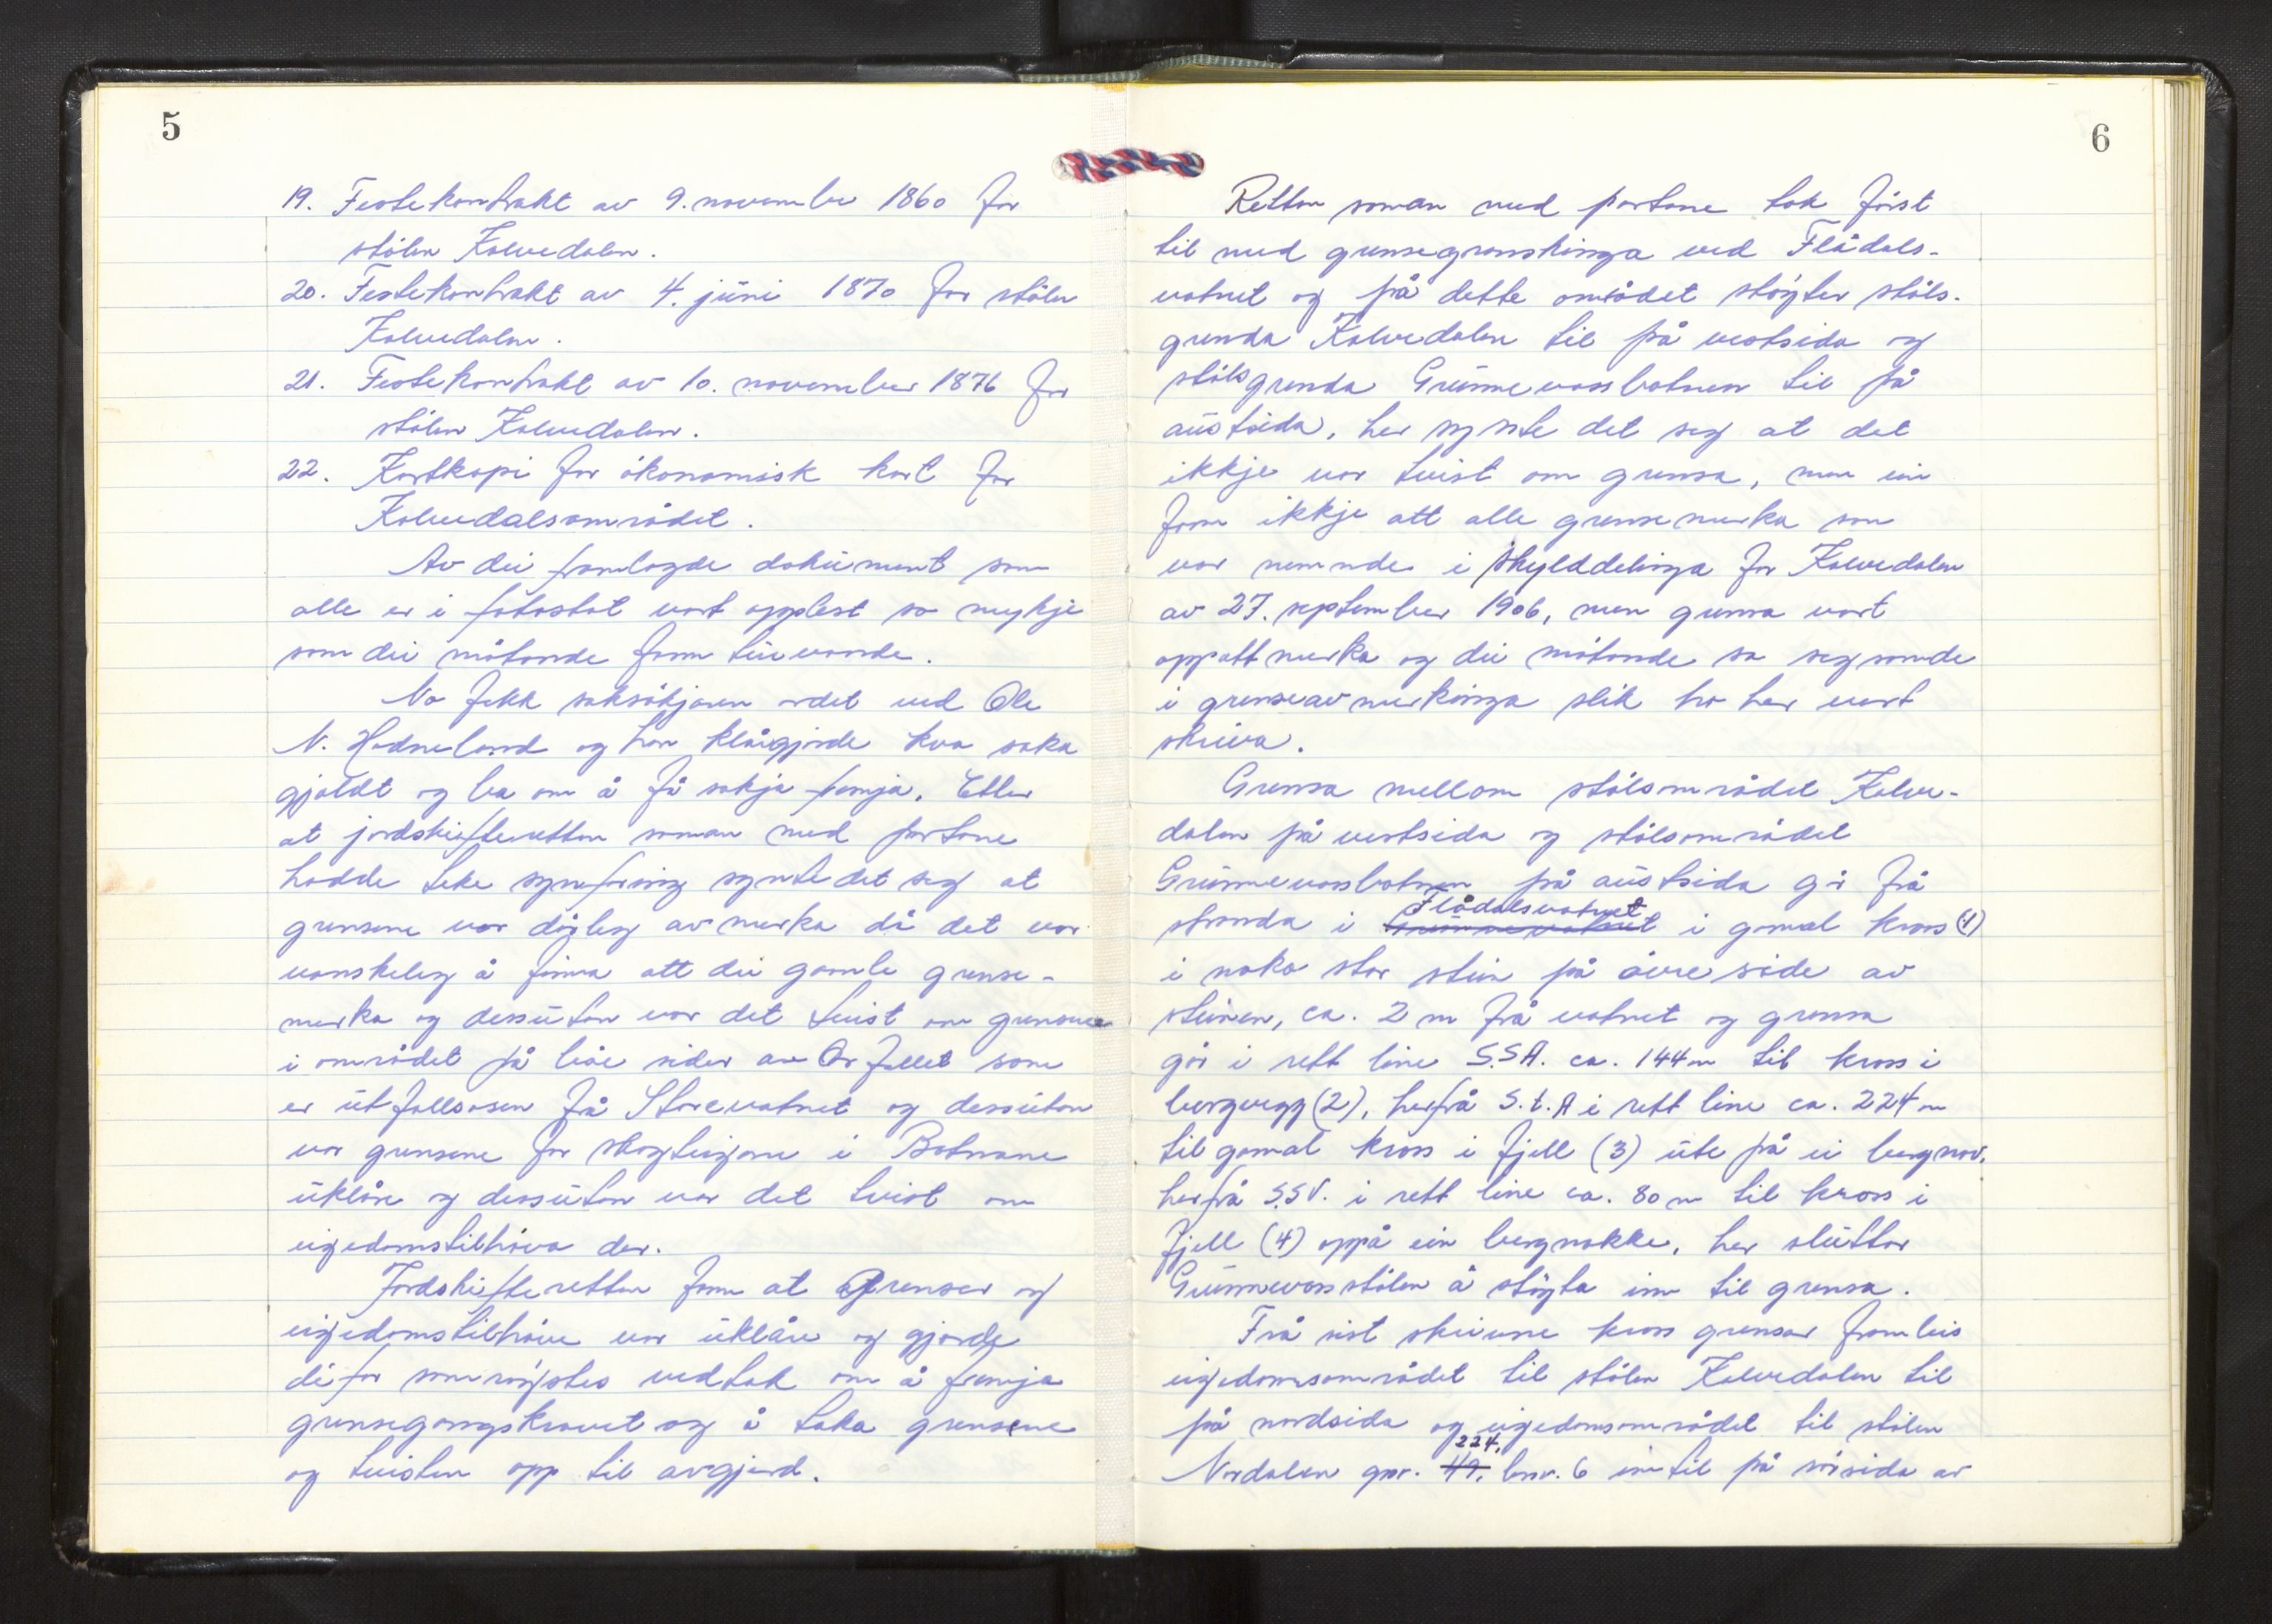 5
19. Festekontrakt av 9. november 1860 for
stølen Kalvedalen.
20. Festekontrakt av 4. juni 1870 for stølen
Kalvedalen.
21. Festekontrakt av 10. november 1876 for
stølen Kalvedalen.
22. Kartkopi for økonomisk kart for
Kalvedalsområdet.
Av dei framlagde dokument som
alle er i fotostat vart opplest so mykje
som dei møtande fann turvande.
No fekk saksøkjaren ordet ved Ole
N. Hodneland og han klårgjorde kva saka
gjaldt og ba om å få sakja fremja. Etter
at jordskifteretten saman med partane
hadde teke synfaring synte det seg at
grensene var dårleg avmerka då det var
vanskeleg å finna att dei gamle grense-
merka og dessutan var det tvist om grensene
i området på beåe sider av Orfallet som
er utfallsosen frå Storevatnet og dessutan
var grensene for skogteigane i Botnane
uklåre og dessutan var det tvist om
eigedomstilhøva der.
Jordskifteretten fann at grenser og
eigedomstilhøve var uklåre og gjorde
difor samrøystes vedtak om å fremja
grensegangskravet og å taka grensene
og tvisten opp til avgjerd.
6
Retten saman med partane tok først
til med grensegranskinga ved Flådals-
vatnet og på dette området støyter støls-
grenda Kalvedalen til på vestsida og
stølsgrenda Grunnevassbotnen til på
austsida, her synte det seg at det
ikkje var tvist om grensa, men ein
fann ikkje att alle grensemerka som
var nemnde i skylddelinga for Kalvedalen
av 27. september 1906, men grensa vart
oppattmerka og dei møtande sa seg samde
i grenseavmerkinga slik ho her vert
skriva.
Grensa mellom stølsområdet Kalve-
dalen på vestsida og stølsområdet
Grunnevassbotnen på austsida går frå
stranda i Flådalsvatnet i gamal kross (1)
i noko stor stein på øvre side av
steinen, ca. 2 m frå vatnet og grensa
går i rett line S.S.A. ca. 144 m til kross i
bergvegg (2), herfrå S.t.A i rett line ca. 224 m
til gamal kross i fjell (3) ute på ei bergnov,
herfrå S.S.V. i rett line ca. 80 m til kross i
fjell (4) oppå ein bergnakke, her sluttar
Grunnevassstølen å støyta inn til grensa.
Frå sist skrivne kross grensar framleis
eigedomsområdet til stølen Kalvedalen til
på nordsida og eigedomsområdet til stølen
Nordalen gnr. 224, bnr. 6 inntil på sørsida av